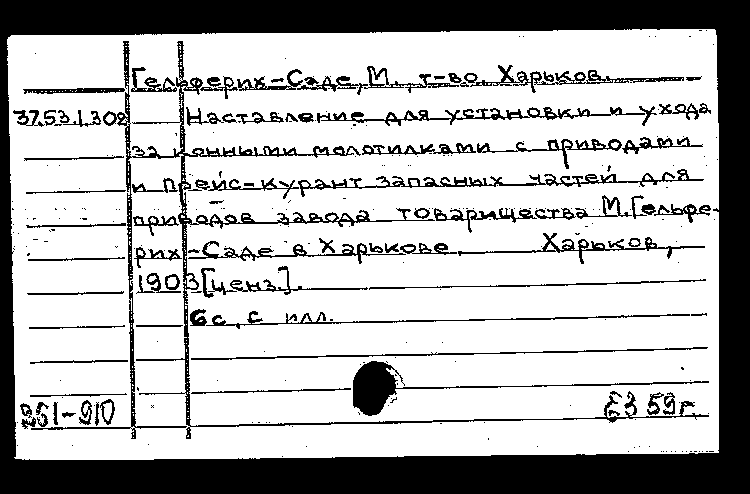 Гельферих-Саде, М., т-во. Харьков.
37.53.1.302 Наставление для установки и ухода
за конными молотилками с приводами
и Прейс-курант запасных частей для
приводов завода товарищества М.Гельфе-
рих-Саде в Харькове. Харьков,
1903[ценз.].
6с., с илл.
951-910 59г.